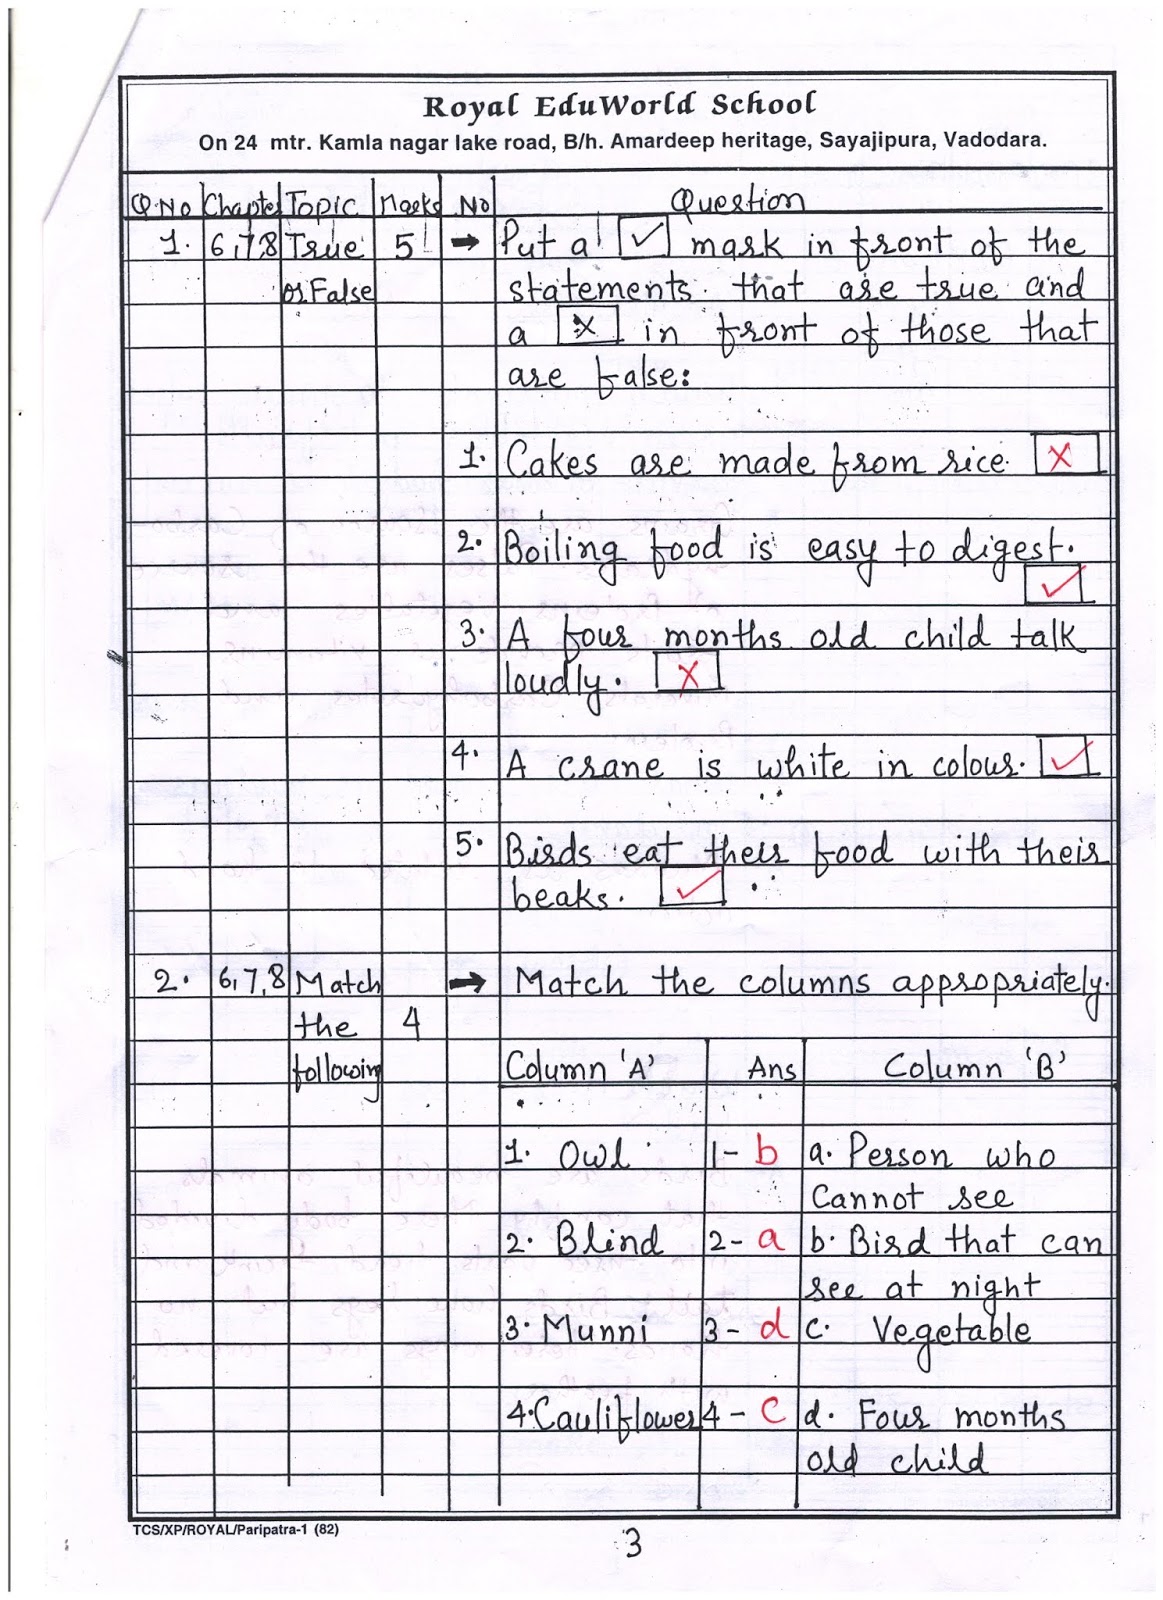 Royal EduWorld School
On 24 mtr. Kamla nagar lake road, B/h. Amardeep heritage, Sayajipura, Vadodara.
Q.No Chapter Topic Marks No Question
1. 6,7,8 True 5 → Put a ✓ mark in front of the
or False statements that are true and
a x in front of those that
are false:
1. Cakes are made from rice X
2. Boiling food is easy to digest.
✓
3. A four months old child talk
loudly. X
4. A crane is white in colour. ✓
5. Birds eat their food with their
beaks. ✓
2. 6,7,8 Match → Match the columns appropriately.
the 4
following Column 'A' Ans Column 'B'
1. Owl 1- b a. Person who
Cannot see
2. Blind 2- a b. Bird that can
see at night
3. Munni 3- d c. Vegetable
4. Cauliflower 4- c d. Four months
old child
TCS/XP/ROYAL/Paripatra-1 (82)
3